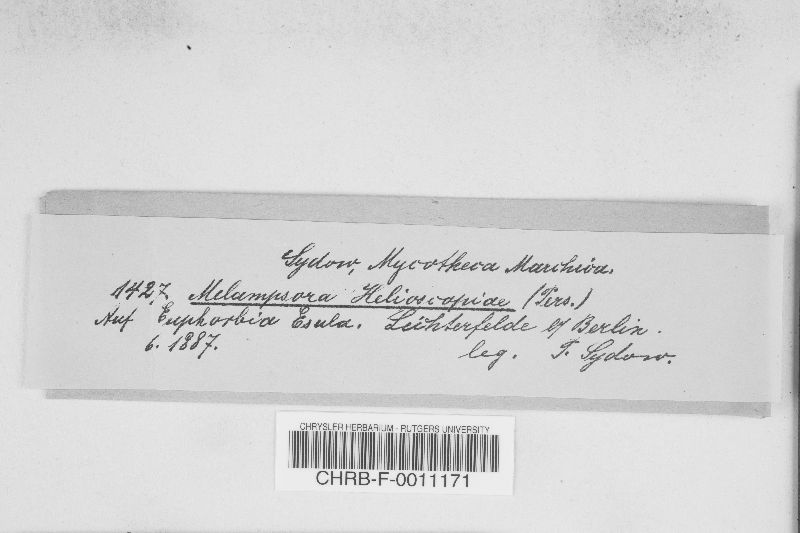 Sydow, Mycotheca Marchica.
1427. Melampsora Helioscopiae (Pers.)
Auf Euphorbia Esula. Lichterfelde b/ Berlin.
6. 1887. leg. P. Sydow.
CHRYSLER HERBARIUM - RUTGERS UNIVERSITY
CHRB-F-0011171